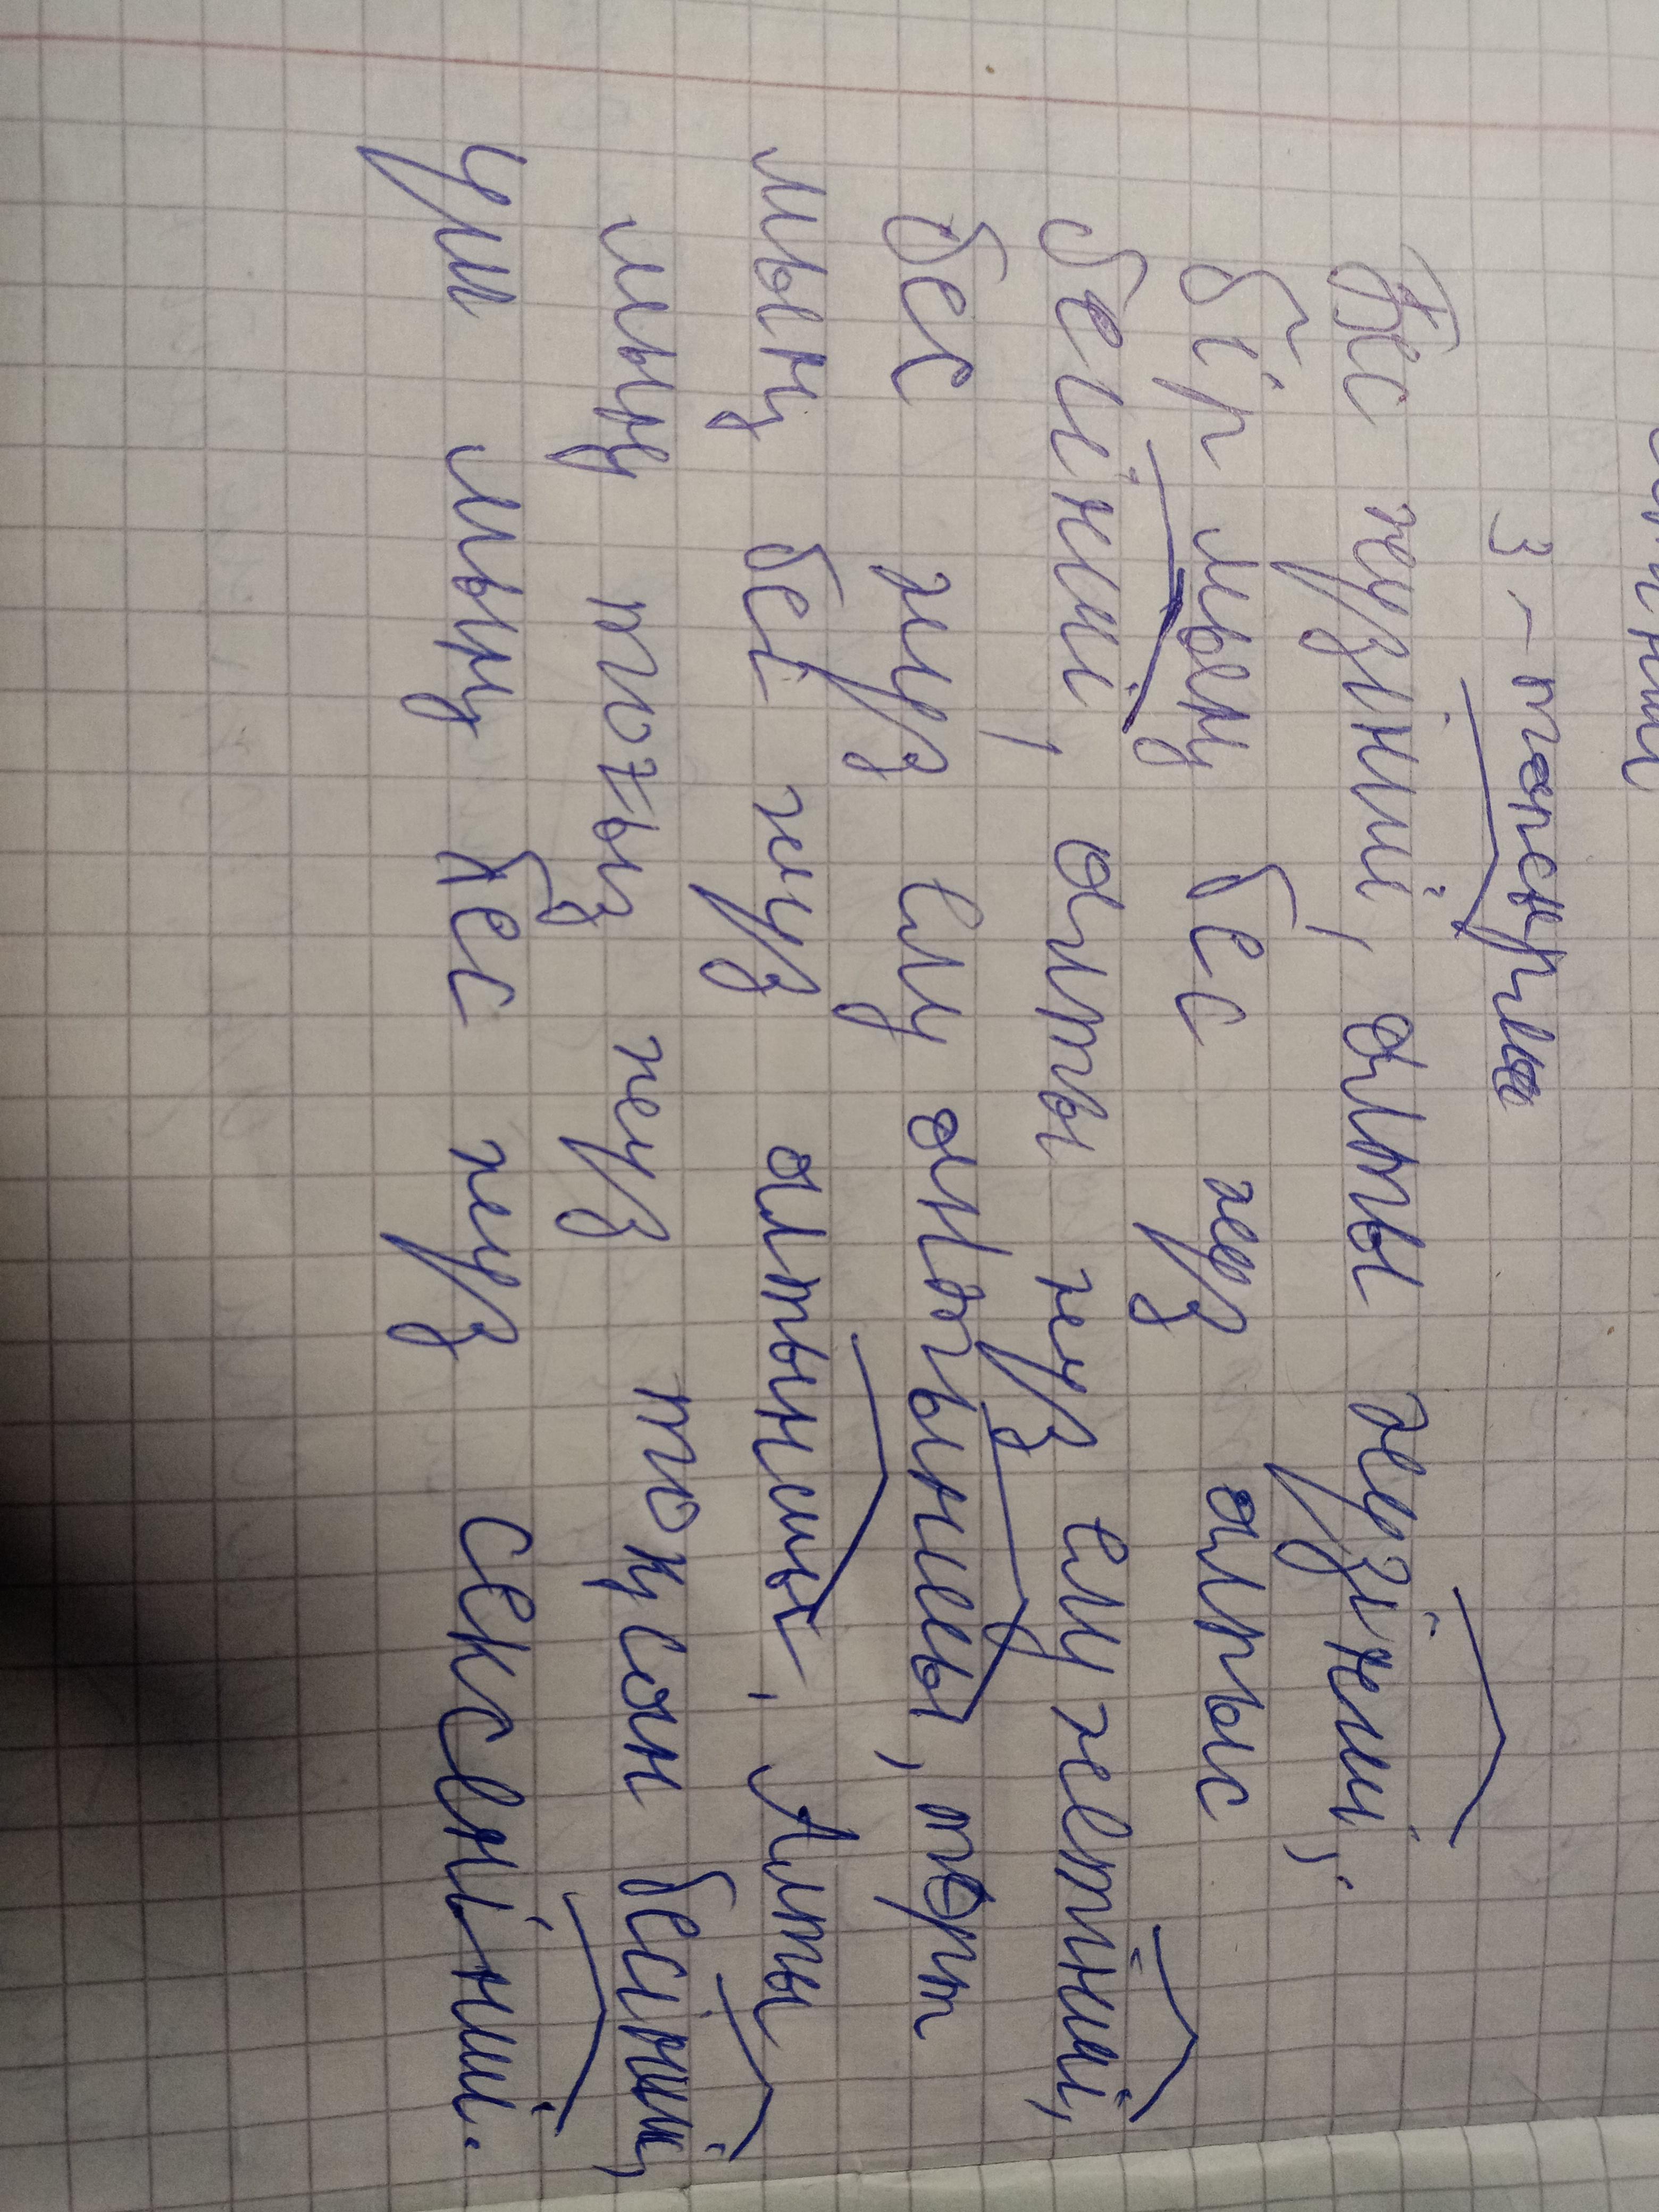 3 - тапсырма
Бес жүзінші, алты жүзінші,
бір мың бес жүз алпыс
бесінші, алты жүз елу жетінші,
бес жүз елу оноыншы, төрт
мың бес жүз алтыншы, Алты
мың тоғыз жүз тоқсан бесінші,
үш мың бес жүз сексеніншi.